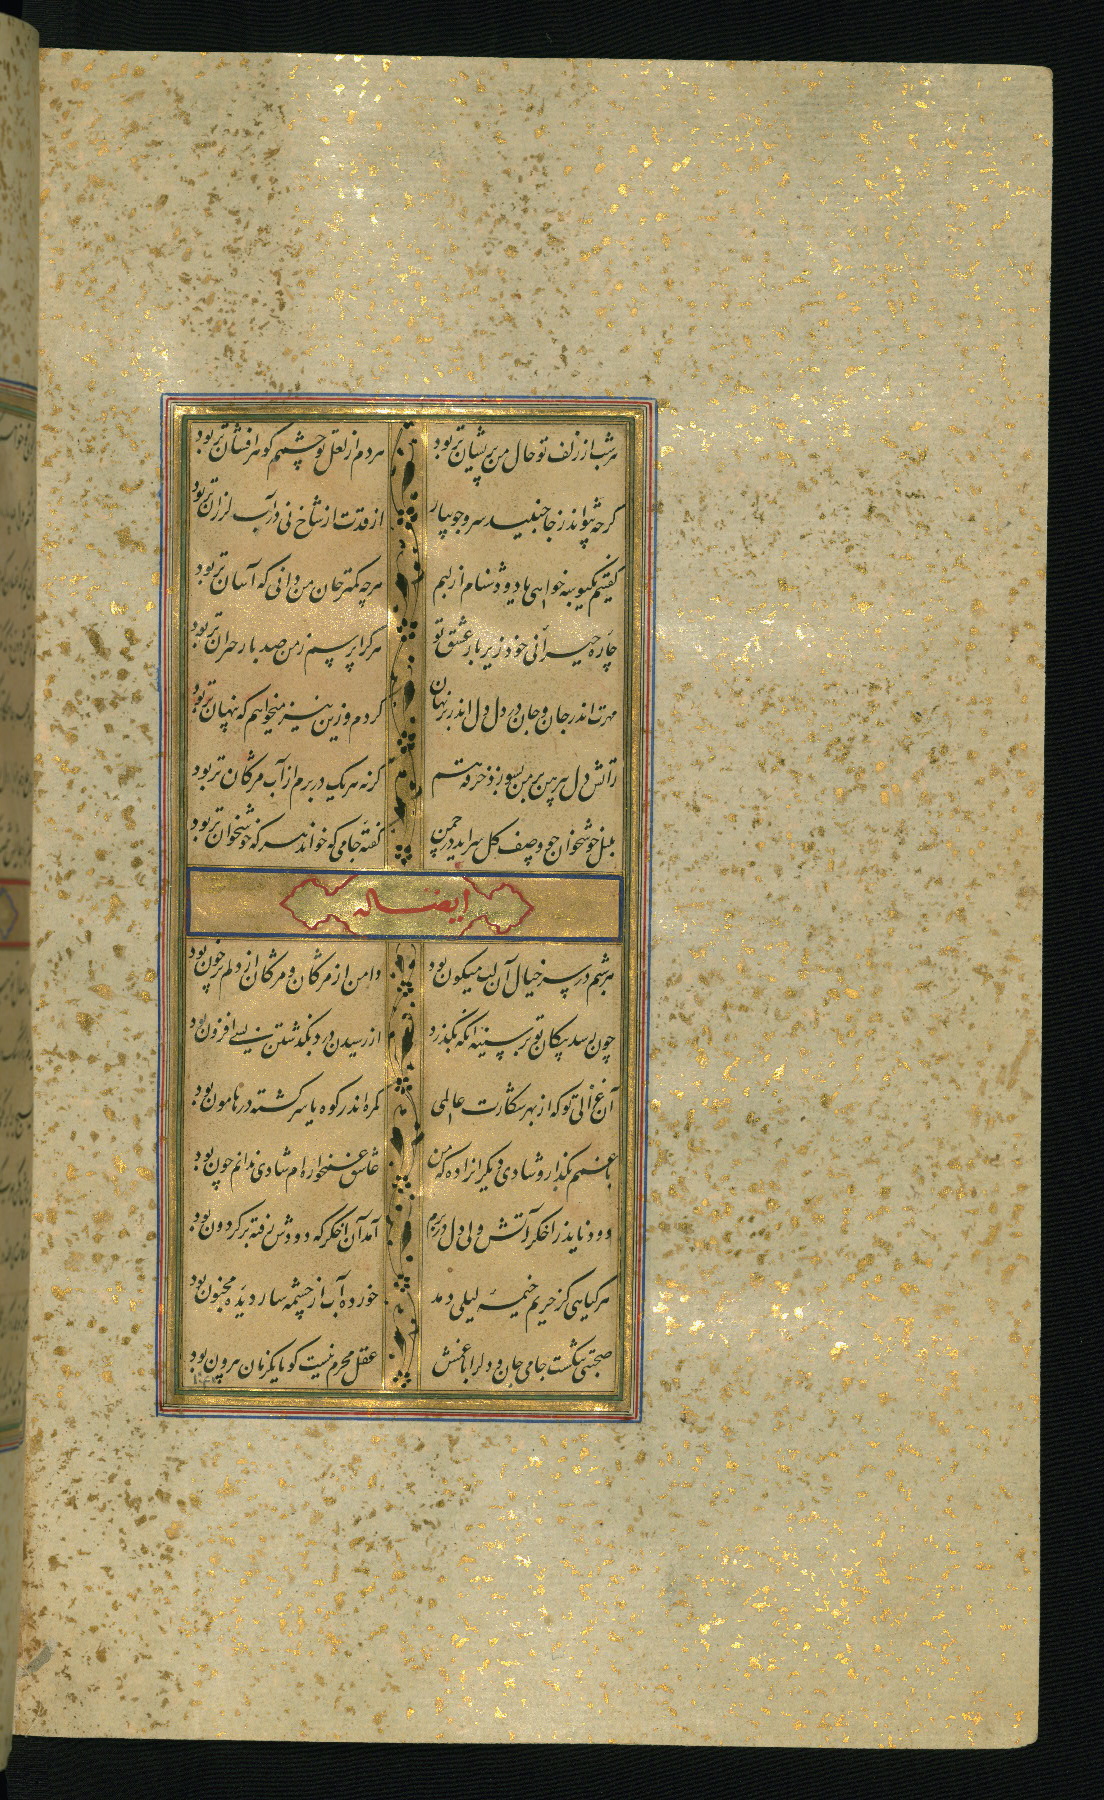 هر شب از زلف تو حال من پریشان تر بود هر دم از لعل تو چشمم گوهر افشان تر بود
گرچه نتواند ز جا جنبید سرو جویبار از قدت از شاخ نی در آب لرزان تر بود
گفتیم یکبوسه خواهی یا دو دشنام از لبم هر چه کمتر جان من دانی که آسان تر بود
چاره حیرانی خود زیر بار عشق تو هر کرا پرسم ز من صد بار حیران تر بود
مهرت اندر جان و جان در دل دل اندر بر نهان کردم و زین نیز میخواهم که پنهان تر بود
زآتش دل پیرهن بر من بسوزد خرقه هم گرنه هر یک در برم از آب مژگان تر بود
بلبل خوشخوان چو وصف گل سراید در چمن گفته جامی که خواند هر که خوشخوان تر بود
ایضا له
هر شبم در سر خیال آن لب میگون بود دامن از مژگان و مژگان از دلم پر خون بود
چون رسد پیکان تو بر سینه آنکه بگذرد از رسیدن درد بگذشتن بسی افزون بود
آن غزالی تو که از بهر شکارت عالمی گمره اندر کوه یا سرگشته در هامون بود
با غمم بگذار و شادی دیگرانرا ده که من عاشق غمخواره ام شادی ندانم چون بود
دود ناید ز اخگر آتش ولی دل در برم آمد آن اخگر که دودش رفته بر گردون بود
هر گیاهی کز حریم خیمه لیلی دمد خورده آب از چشمه سار دیده مجنون بود
صحبتی شگفت جامی جان و دل را با غمش عقل محرم نیست گو تا یکزمان بیرون بود